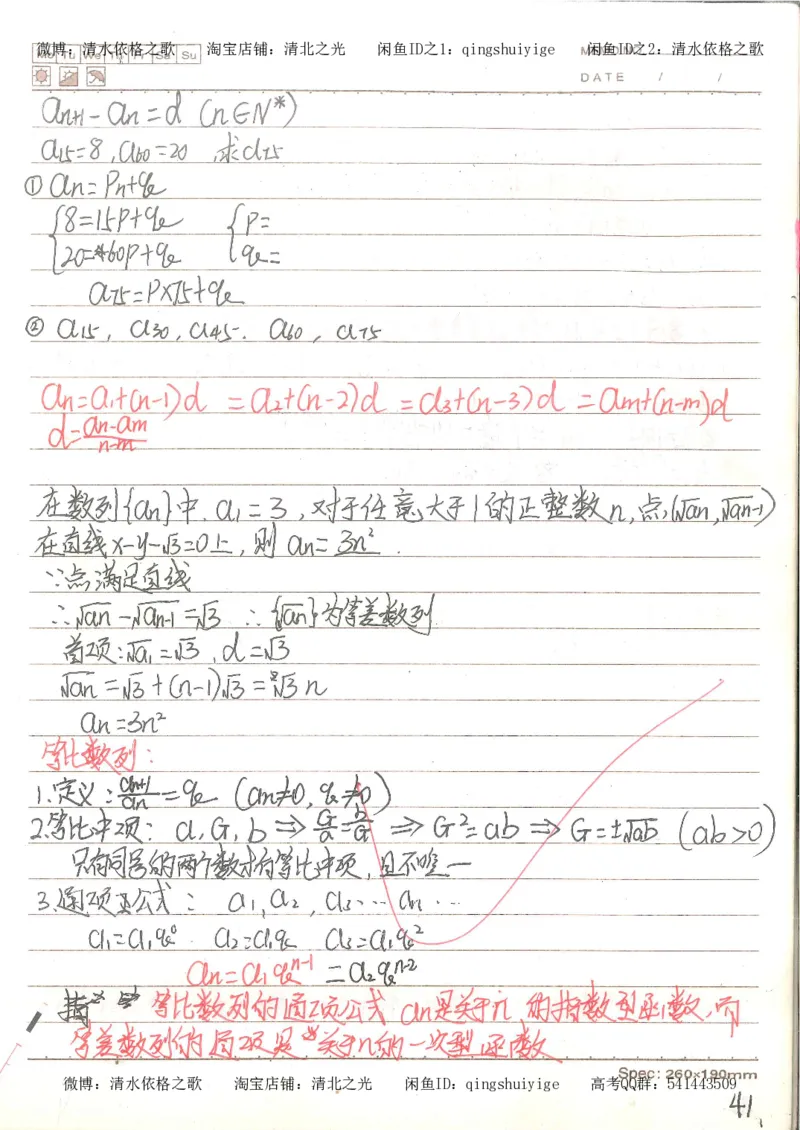 微博：清水依格之歌 淘宝店铺：清北之光 闲鱼ID之1：qingshuiyige 闲鱼ID之2：清水依格之歌
Mo Tu We Th Fr Sa Su
DATE / /
an+1-an=d (n∈N*)
a15=8,a60=20,求a75
① an=Pn+q
{8=15p+q {p=
20=60p+q q=
a75=P×75+q
② a15, a30, a45. a60, a75
an=a1+(n-1)d =a2+(n-2)d =a3+(n-3)d =am+(n-m)d
d=(an-am)/(n-m)
在数列{an}中,a1=3,对于任意大于1的正整数n,点(√an,√an-1)
在直线x-y-√3=0上,则an=3n².
∵点满足直线
∴√an-√an-1=√3 ∴{√an}为等差数列
首项:√a1=√3,d=√3
√an=√3+(n-1)√3=√3n
an=3n²
等比数列:
1.定义:an+1/an=q (an≠0,q≠0)
2.等比中项: a,G,b⇒G/a=b/G ⇒G²=ab⇒G=±√ab (ab>0)
只有同号的两个数才有等比中项,且不唯一
3.通项公式: a1,a2,a3…an…
a1=a1q⁰ a2=a1q a3=a1q²
an=a1qⁿ⁻¹=a2qⁿ⁻²
等比数列的通项公式an是关于n的指数型函数,而
等差数列的通项是关于n的一次型函数
Spec: 260×190mm
微博：清水依格之歌 淘宝店铺：清北之光 闲鱼ID：qingshuiyige 高考QQ群：541443509
41